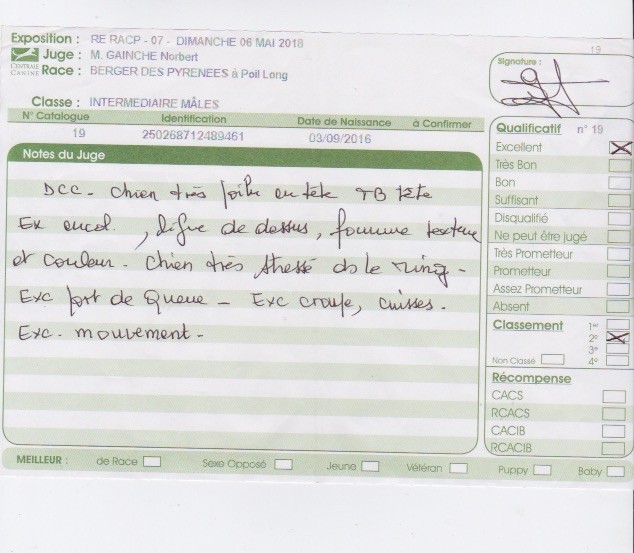 Exposition : RE RACP - 07 - DIMANCHE 06 MAI 2018
CENTRALE CANINE
Juge : M. GAINCHE Norbert
Race : BERGER DES PYRENEES à Poil Long
Classe : INTERMEDIAIRE MÂLES
N° Catalogue Identification Date de Naissance à Confirmer
19 250268712489461 03/09/2016
Notes du Juge
DCC - Chien très en tête TB tête
Ex encol. , ligne de dessus, texture
et couleur - Chien très stressé ds le ring -
Exc port de Queue - Exc croupe, cuisses.
Exc. mouvement -
19
Signature :
Qualificatif n° 19
Excellent
Très Bon
Bon
Suffisant
Disqualifié
Ne peut être jugé
Très Prometteur
Prometteur
Assez Prometteur
Absent
Classement 1er
2e
3e
Non Classé 4e
Récompense
CACS
RCACS
CACIB
RCACIB
MEILLEUR : de Race Sexe Opposé Jeune Vétéran Puppy Baby